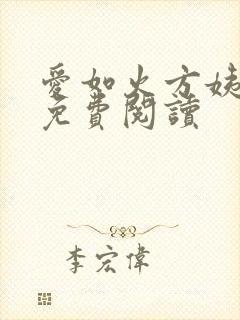 愛如火方姨
免費閱讀
李宏偉